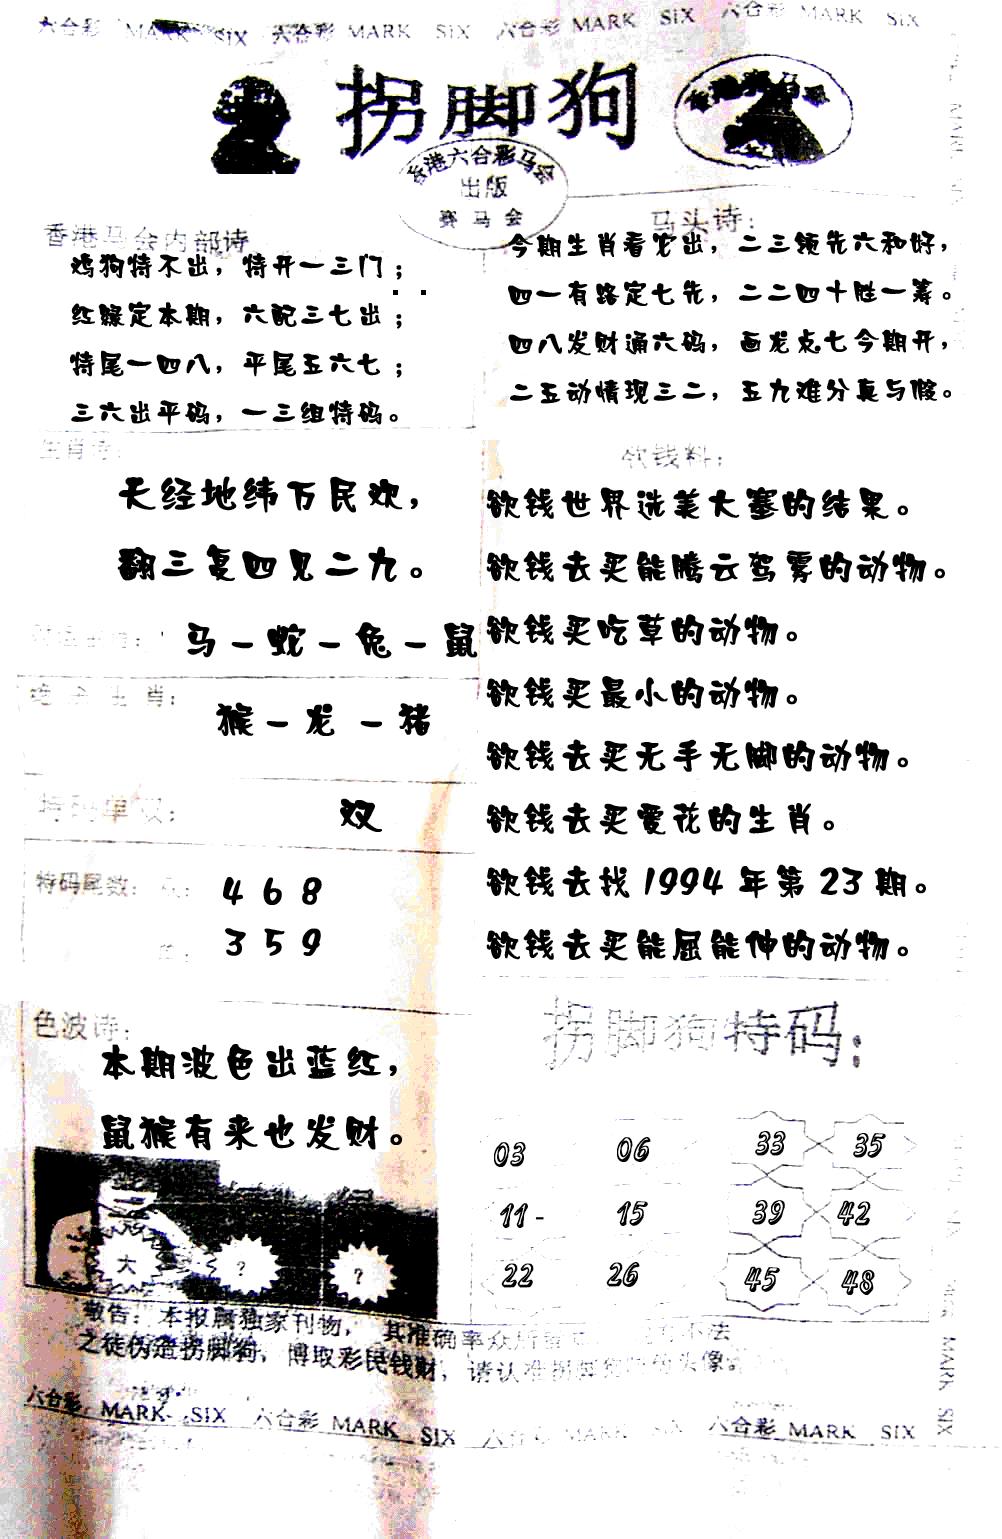 六合彩 MARK SIX 六合彩 MARK SIX 六合彩 MARK SIX 六合彩 MARK SIX
拐脚狗
香港六合彩马会
出版
赛马会
香港马会内部诗
鸡狗特不出，特开一三门；
红缘定本期，六配三七出；
特尾一四八，平尾五六七；
三六出平码，一三组特码。
马头诗：
今期生肖看它出，二三领先六和好，
四一有路定七先，二二四十胜一筹。
四八发财通六码，画龙点七今期开，
二五动情现三二，五九难分真与假。
生肖诗：
天经地纬万民欢，
翻三复四见二九。
马－蛇－兔－鼠
绝杀生肖：
猴－龙－猪
特码单双：
双
特码尾数：
4 6 8
3 5 9
色波诗：
本期波色出蓝红，
鼠猴有来也发财。
大 ？ ？
欲钱料：
欲钱世界选美大塞的结果。
欲钱去买能腾云驾雾的动物。
欲钱买吃草的动物。
欲钱买最小的动物。
欲钱去买无手无脚的动物。
欲钱去买爱花的生肖。
欲钱去找1994年第23期。
欲钱去买能屈能伸的动物。
拐脚狗特码：
03 06 33 35
11- 15 39 42
22 26 45 48
敬告：本报属独家刊物，其准确率众所 不法
之徒伪造拐脚狗，博取彩民钱财，请认准拐脚狗 头像。
六合彩 MARK SIX 六合彩 MARK SIX 六合彩 MARK SIX 六合彩 MARK SIX
MARK SIX